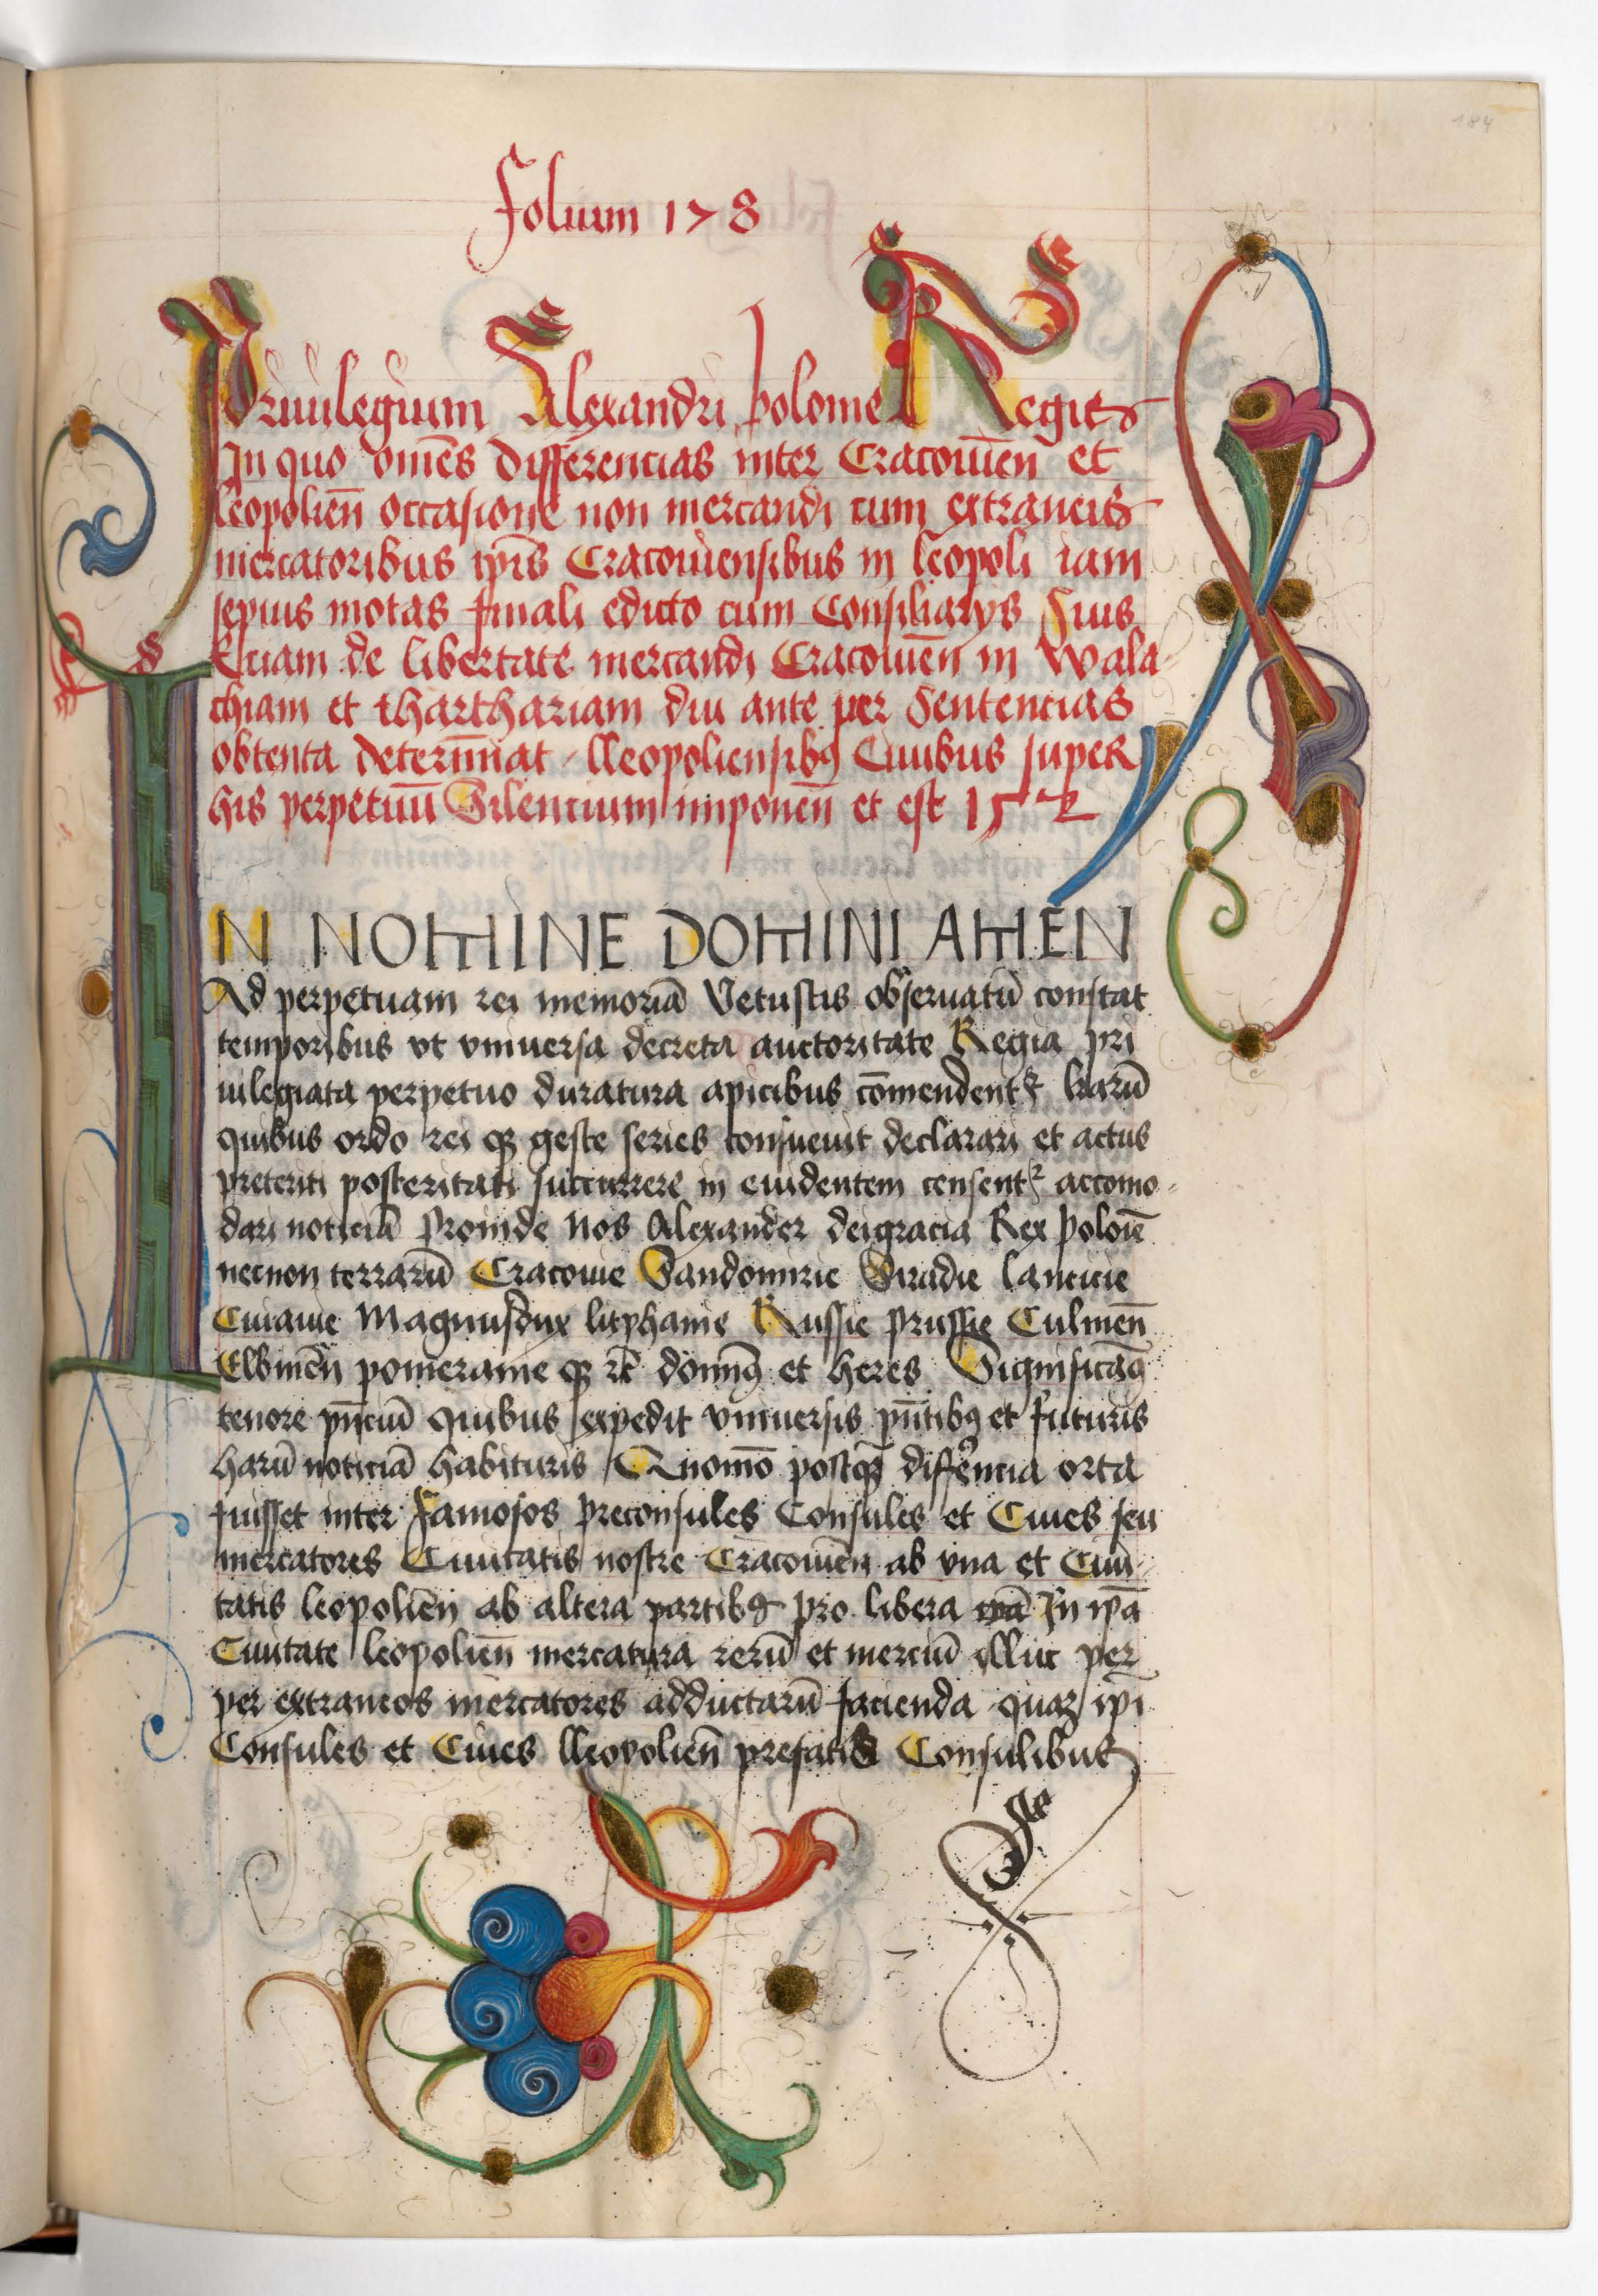 184
Folium 178
Priuilegium Alexandri Polonie Regis
In quo om̄es differencias inter Cracouien̄ et
leopolien̄ occasione non mercandi cum extraneis
mercatoribus ip̄is Cracouiensibus in leopoli iam
sepius motas finali edicto cum Consiliarys Suis
Eciam de libertate mercandi Cracouien̄ in Wala-
chiam et tharthariam diu ante per Sentencias
obtenta determ̄inat lleopoliensibꝯ Ciuibus super
his perpetuū Silencium imponen̄ et est 15
IN NOMINE DOMINI AMEN
Ad perpetuam rei memoriā Vetustis obseruatū constat
temporibus vt vniuersa decreta auctoritate Regia pri
uilegiata perpetuo duratura apicibus cōmendentꝛ lrarū
quibus ordo rei qꝫ geste series consueuit declarari et actus
preteriti posteritati succurrere in euidentem censentꝛ accomo-
dari noticiā Proinde Nos Alexander deigracia Rex Polonie
necnon terrarū Cracouie Sandomirie Siradie lancicie
Cuiauie Magnusdux lithphanie Russie prussie Culmen̄
Elbinen̄ pomeranie qꝫ ⁊c̄ domīnꝯ et heres Significamꝯ
tenore pn̄ciū quibus expedit vniuersis pn̄tibꝯ et futuris
harū noticiā habituris Quomō postqꝫ differencia orta
fuisset inter Famosos preconsules Consules et Ciues seu
mercatores Ciuitatis nostre Cracouien̄ ab vna et Ciui-
tatis leopolien̄ ab altera partibꝯ pro libera In ip̄a
Ciuitate leopolien̄ mercatura rerū et merciū illuc per
per extraneos mercatores adductarū facienda quaꝫ ip̄i
Consules et Ciues lleopolien̄ prefatis Consulibus